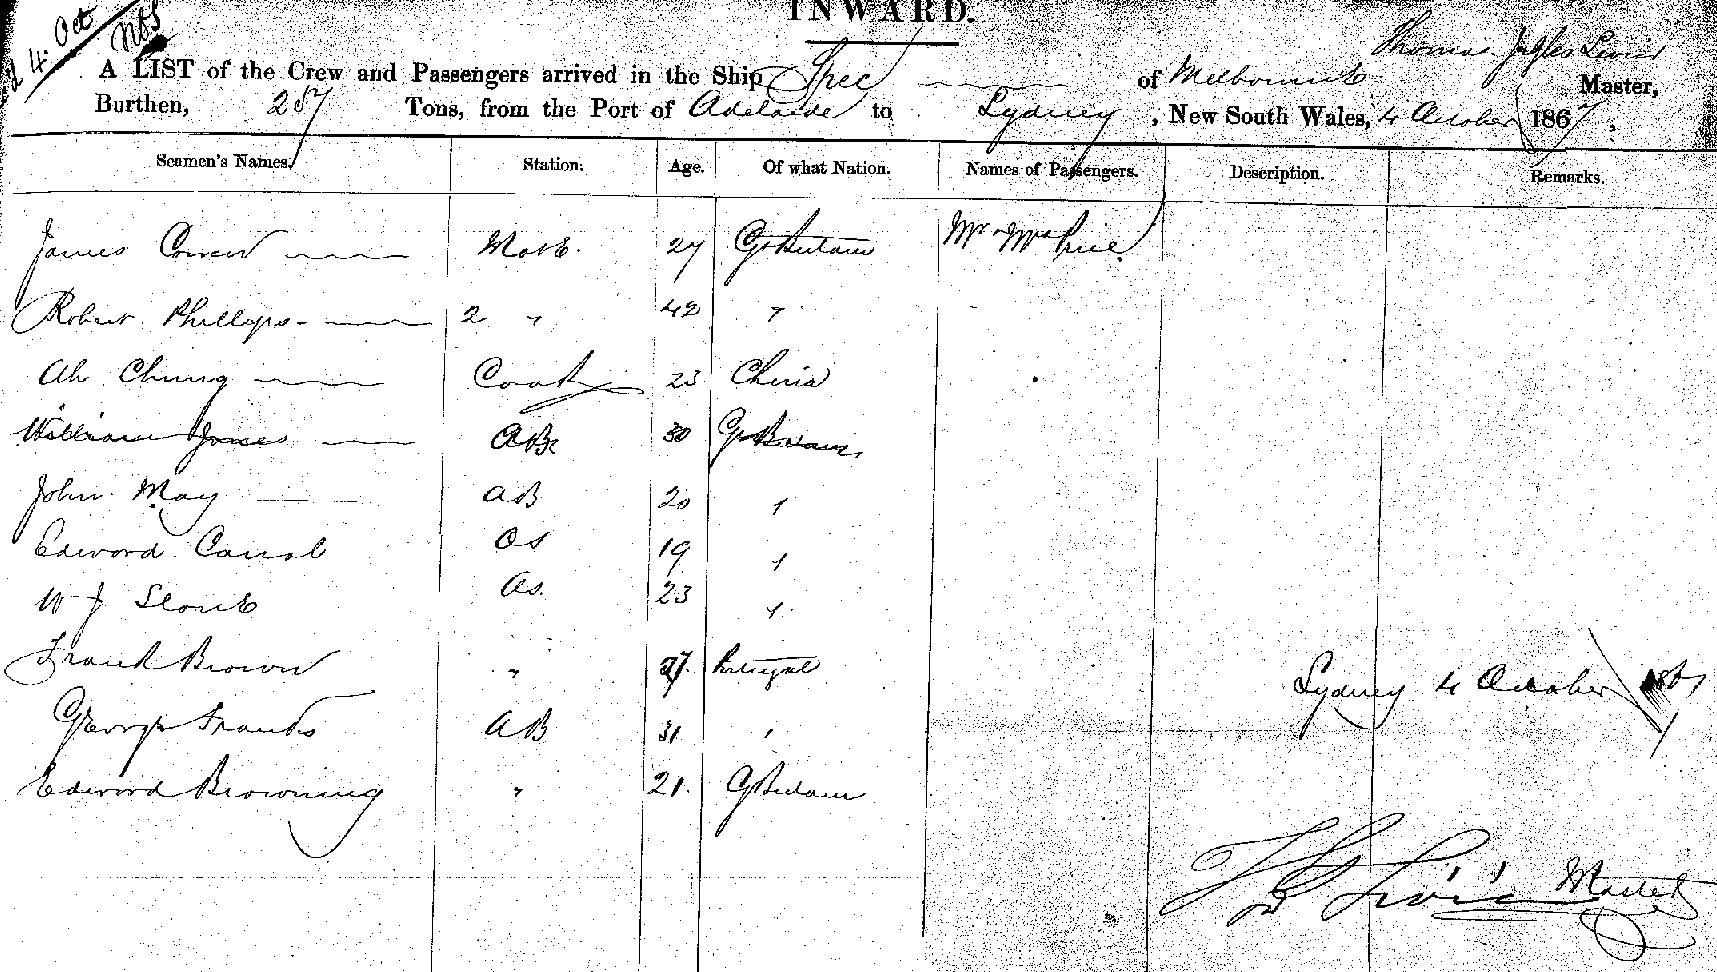 INWARD.
4. Oct
A LIST of the Crew and Passengers arrived in the Ship Spec of Melbourne Thomas Lewis Master,
Burthen, 257 Tons, from the Port of Adelaide to Sydney, New South Wales, 4 October 1867.
Seamen's Names. Station. Age. Of what Nation. Names of Passengers. Description. Remarks.
James Mate. 27 Gt Britain Mr Mrs
Robert Phillips 2 " 42 "
Ah Chung Cook 23 China
William Jones AB. 30 Gt Britain
John May AB 20 "
Edward Carrol OS 19 "
W J OS. 23 "
Frank Brown " 27. Portugal
George Franks AB 31 "
Edward Browning " 21. Gt Britain
Sydney 4 October 1867
Lewis Master